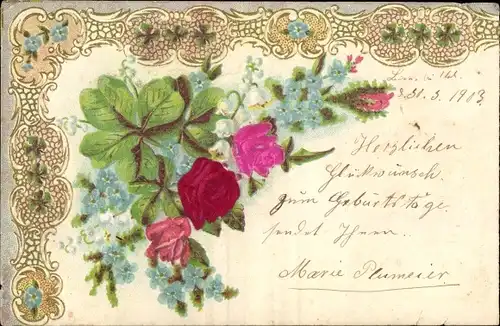 31. 3. 1903
Herzlichen
Glückwunsch
zum Geburtstage
sendet Ihnen
Marie Plumeier